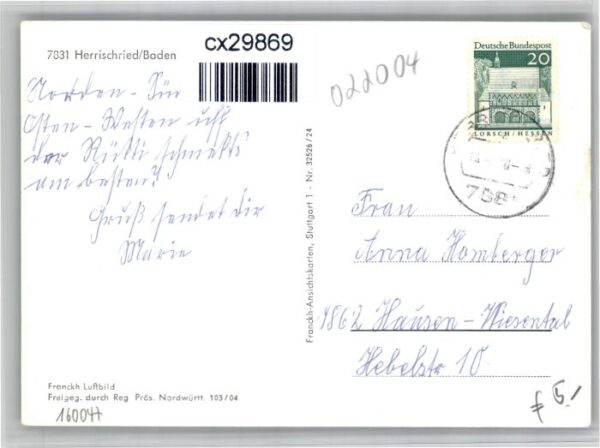 7831 Herrischried/Baden
cx29869
022004
Deutsche Bundespost
20
LORSCH/HESSEN
Norden - Sü
Osten - Westen
der Rütti schmekts
am besten!
Gruß sendet dir
Marie
Franckh-Ansichtskarten, Stuttgart 1 - Nr. 32526/24
Frau
Anna Homberger
7862 Hausen-Wiesental
Hebelstr 10
Franckh Luftbild
Freigeg. durch Reg Präs. Nordwürtt. 103/04
160047
£ 5.-